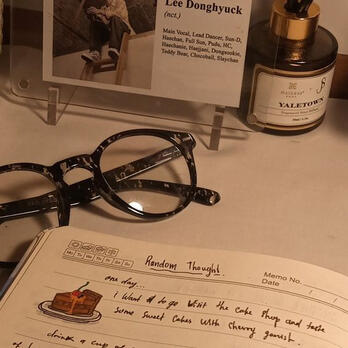 Lee Donghyuck
(nct.)
Main Vocal, Lead Dancer, Sun-D,
Haechan, Full Sun, Pudu, HC,
Haechanie, Haejjani, Dongsookie,
Teddy Bear, Chocoball, Slaychan
YALETOWN
Random Thought.
Memo No.
Date / /
Mo Tu We Th Fr Sa Su
one day...
I want to go visit the cake shop and taste
some sweet cakes with cherry garnish.
drink a cup of